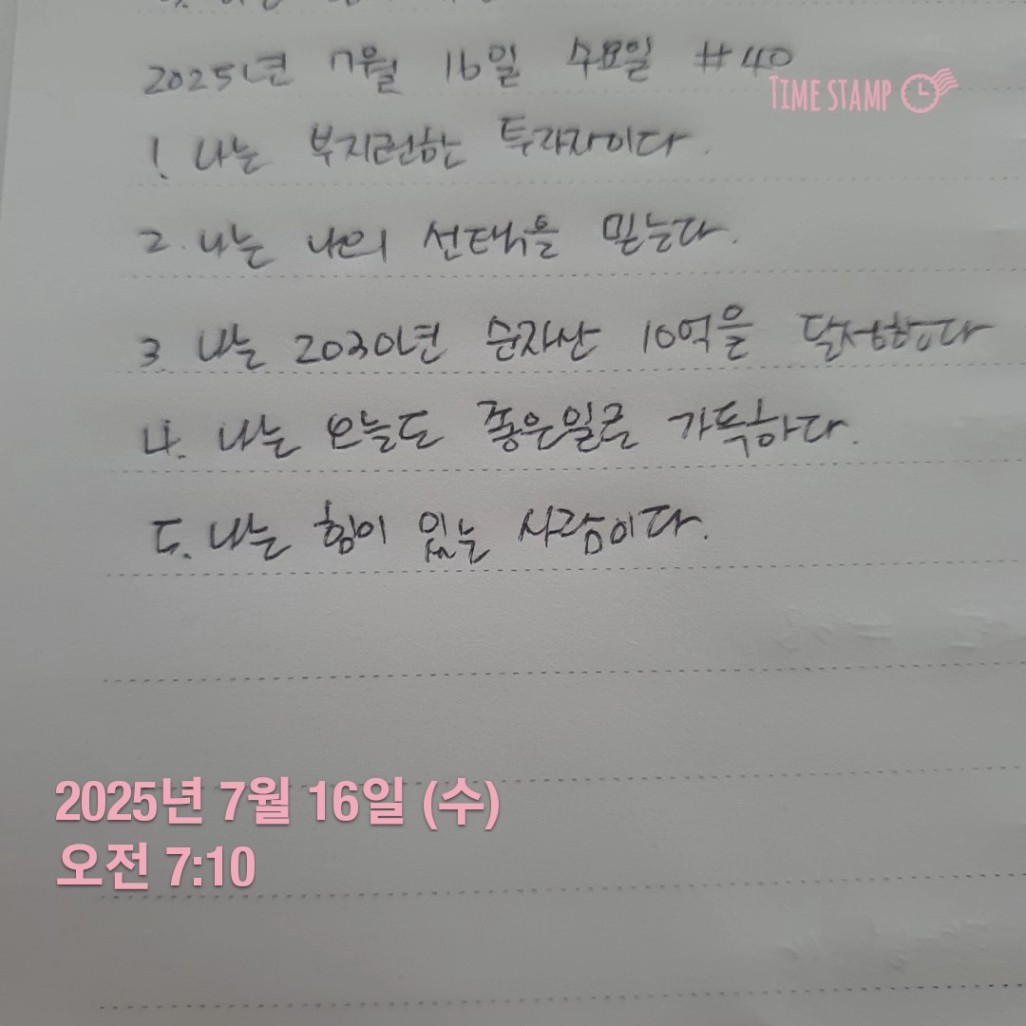 2025년 7월 16일 수요일 #40
TIME STAMP
1. 나는 부지런한 투자자이다.
2. 나는 나의 선택을 믿는다.
3. 나는 2030년 순자산 10억을 달성한다
4. 나는 오늘도 좋은일로 가득하다.
5. 나는 힘이 있는 사람이다.
2025년 7월 16일 (수)
오전 7:10